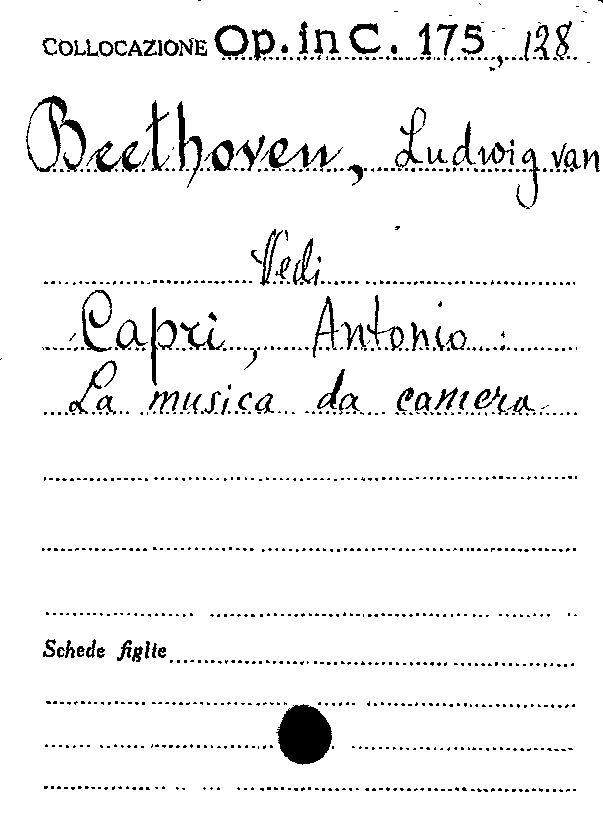 COLLOCAZIONE Op. in C. 175, 128
Beethoven, Ludwig van
Vedi
Capri, Antonio:
La musica da camera
Schede figlie